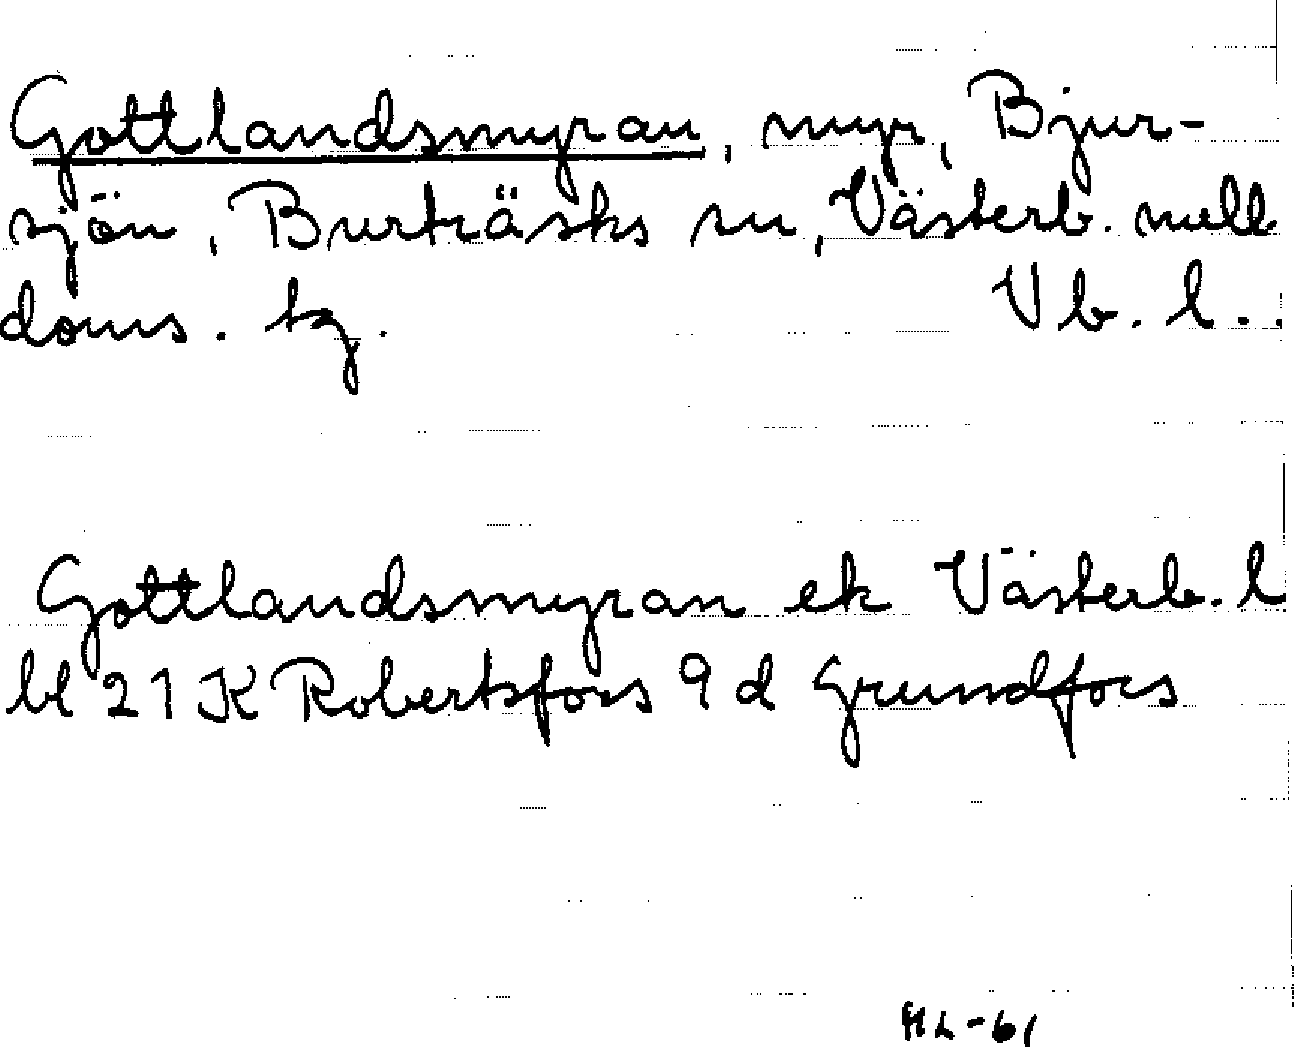 Gottlandsmyran, myr, Bjur-
sjön, Burträsks sn, Västerb. mell
doms. tg. Vb. l..
Gottlandsmyran ek Västerb. l
bl 21 K Robertsfors 9 d Grundfors
HL-61